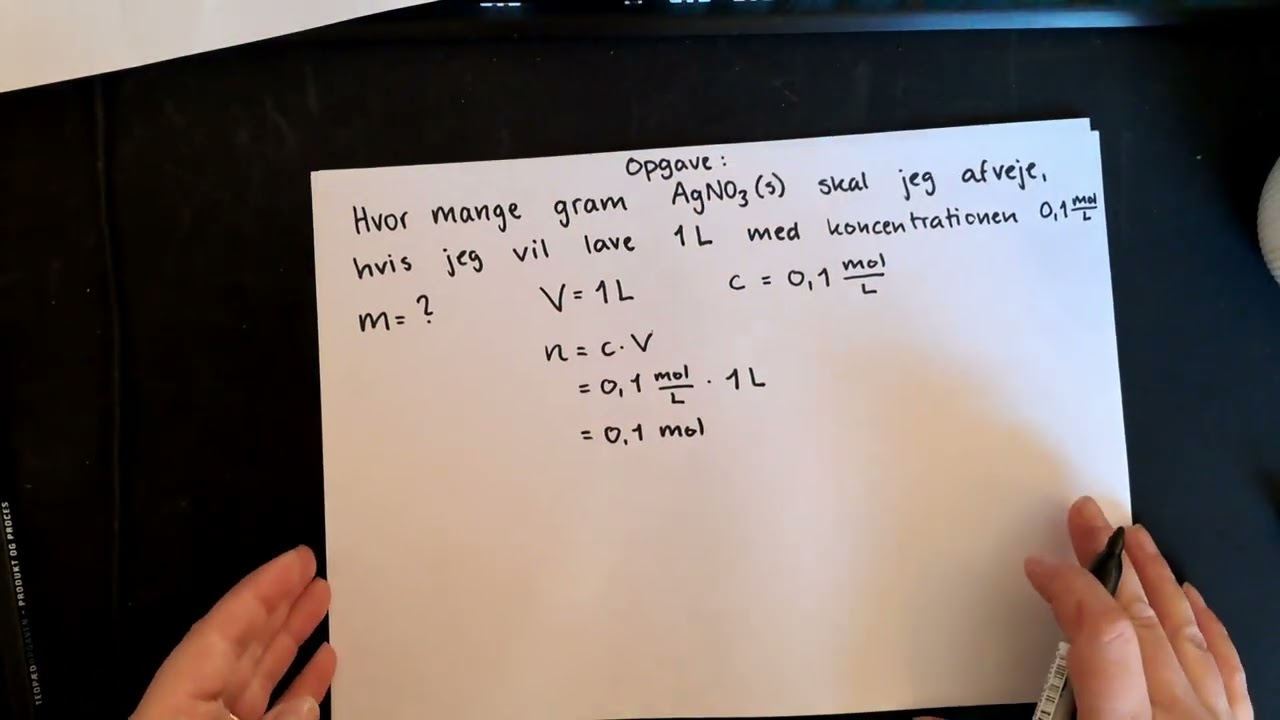 Opgave:
Hvor mange gram AgNO3(s) skal jeg afveje,
hvis jeg vil lave 1L med koncentrationen 0,1 mol/L
m = ? V = 1L c = 0,1 mol/L
n = c · V
= 0,1 mol/L · 1L
= 0,1 mol
TEOPÆDOPGAVEN - PRODUKT OG PROCES